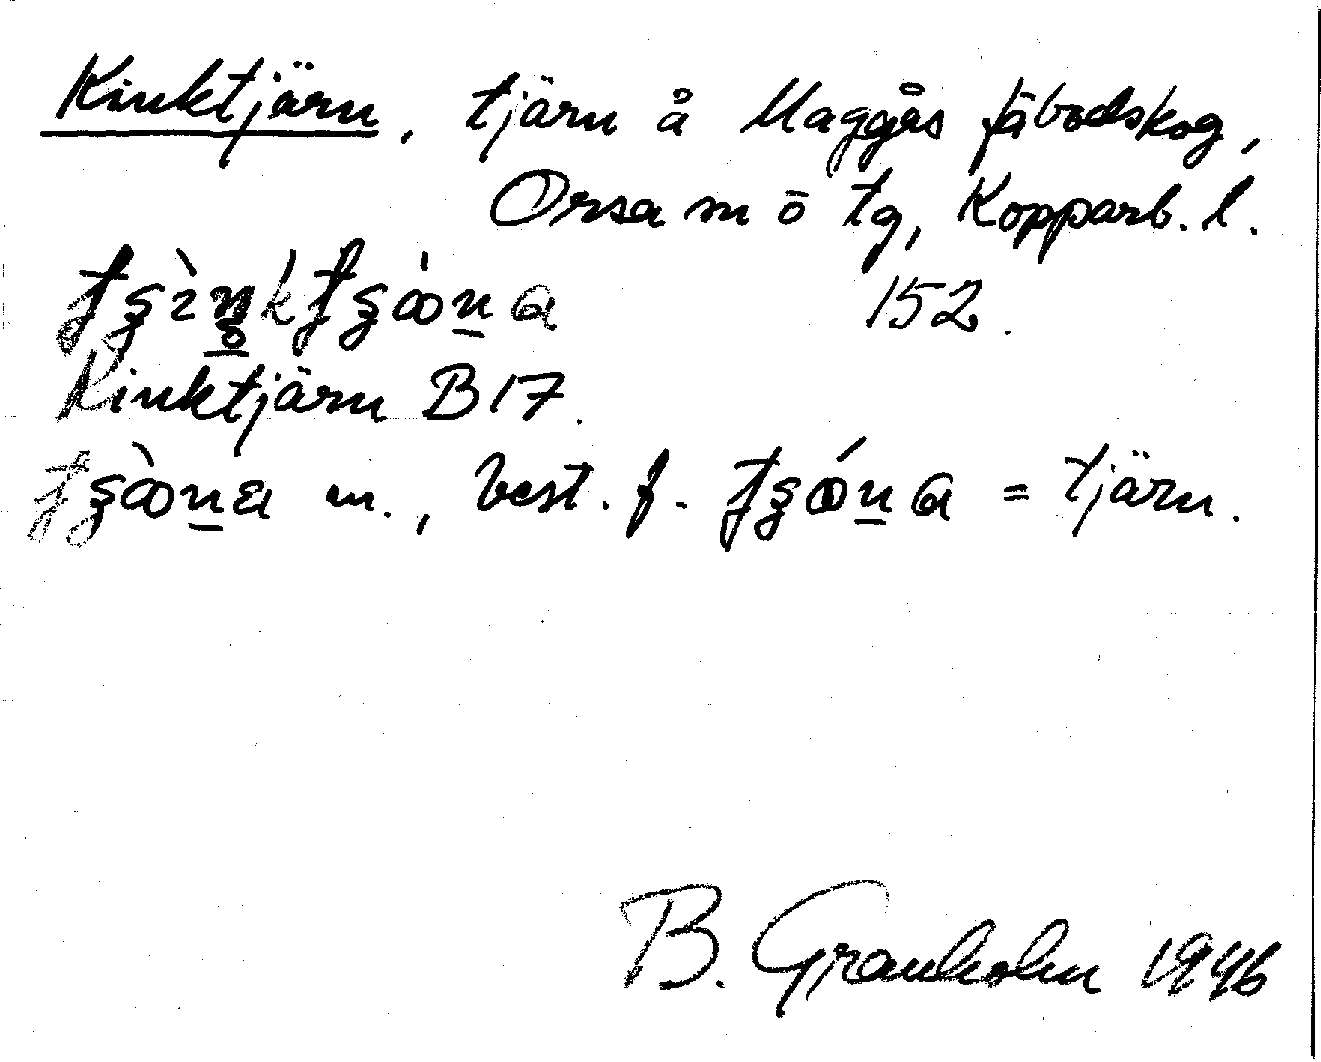 Kinktjärn, tjärn å Maggås fäbodskog,
Orsa m o tg, Kopparb. l.
152.
Kinktjärn B17.
m., best. f. = tjärn.
B. Granholm 1946